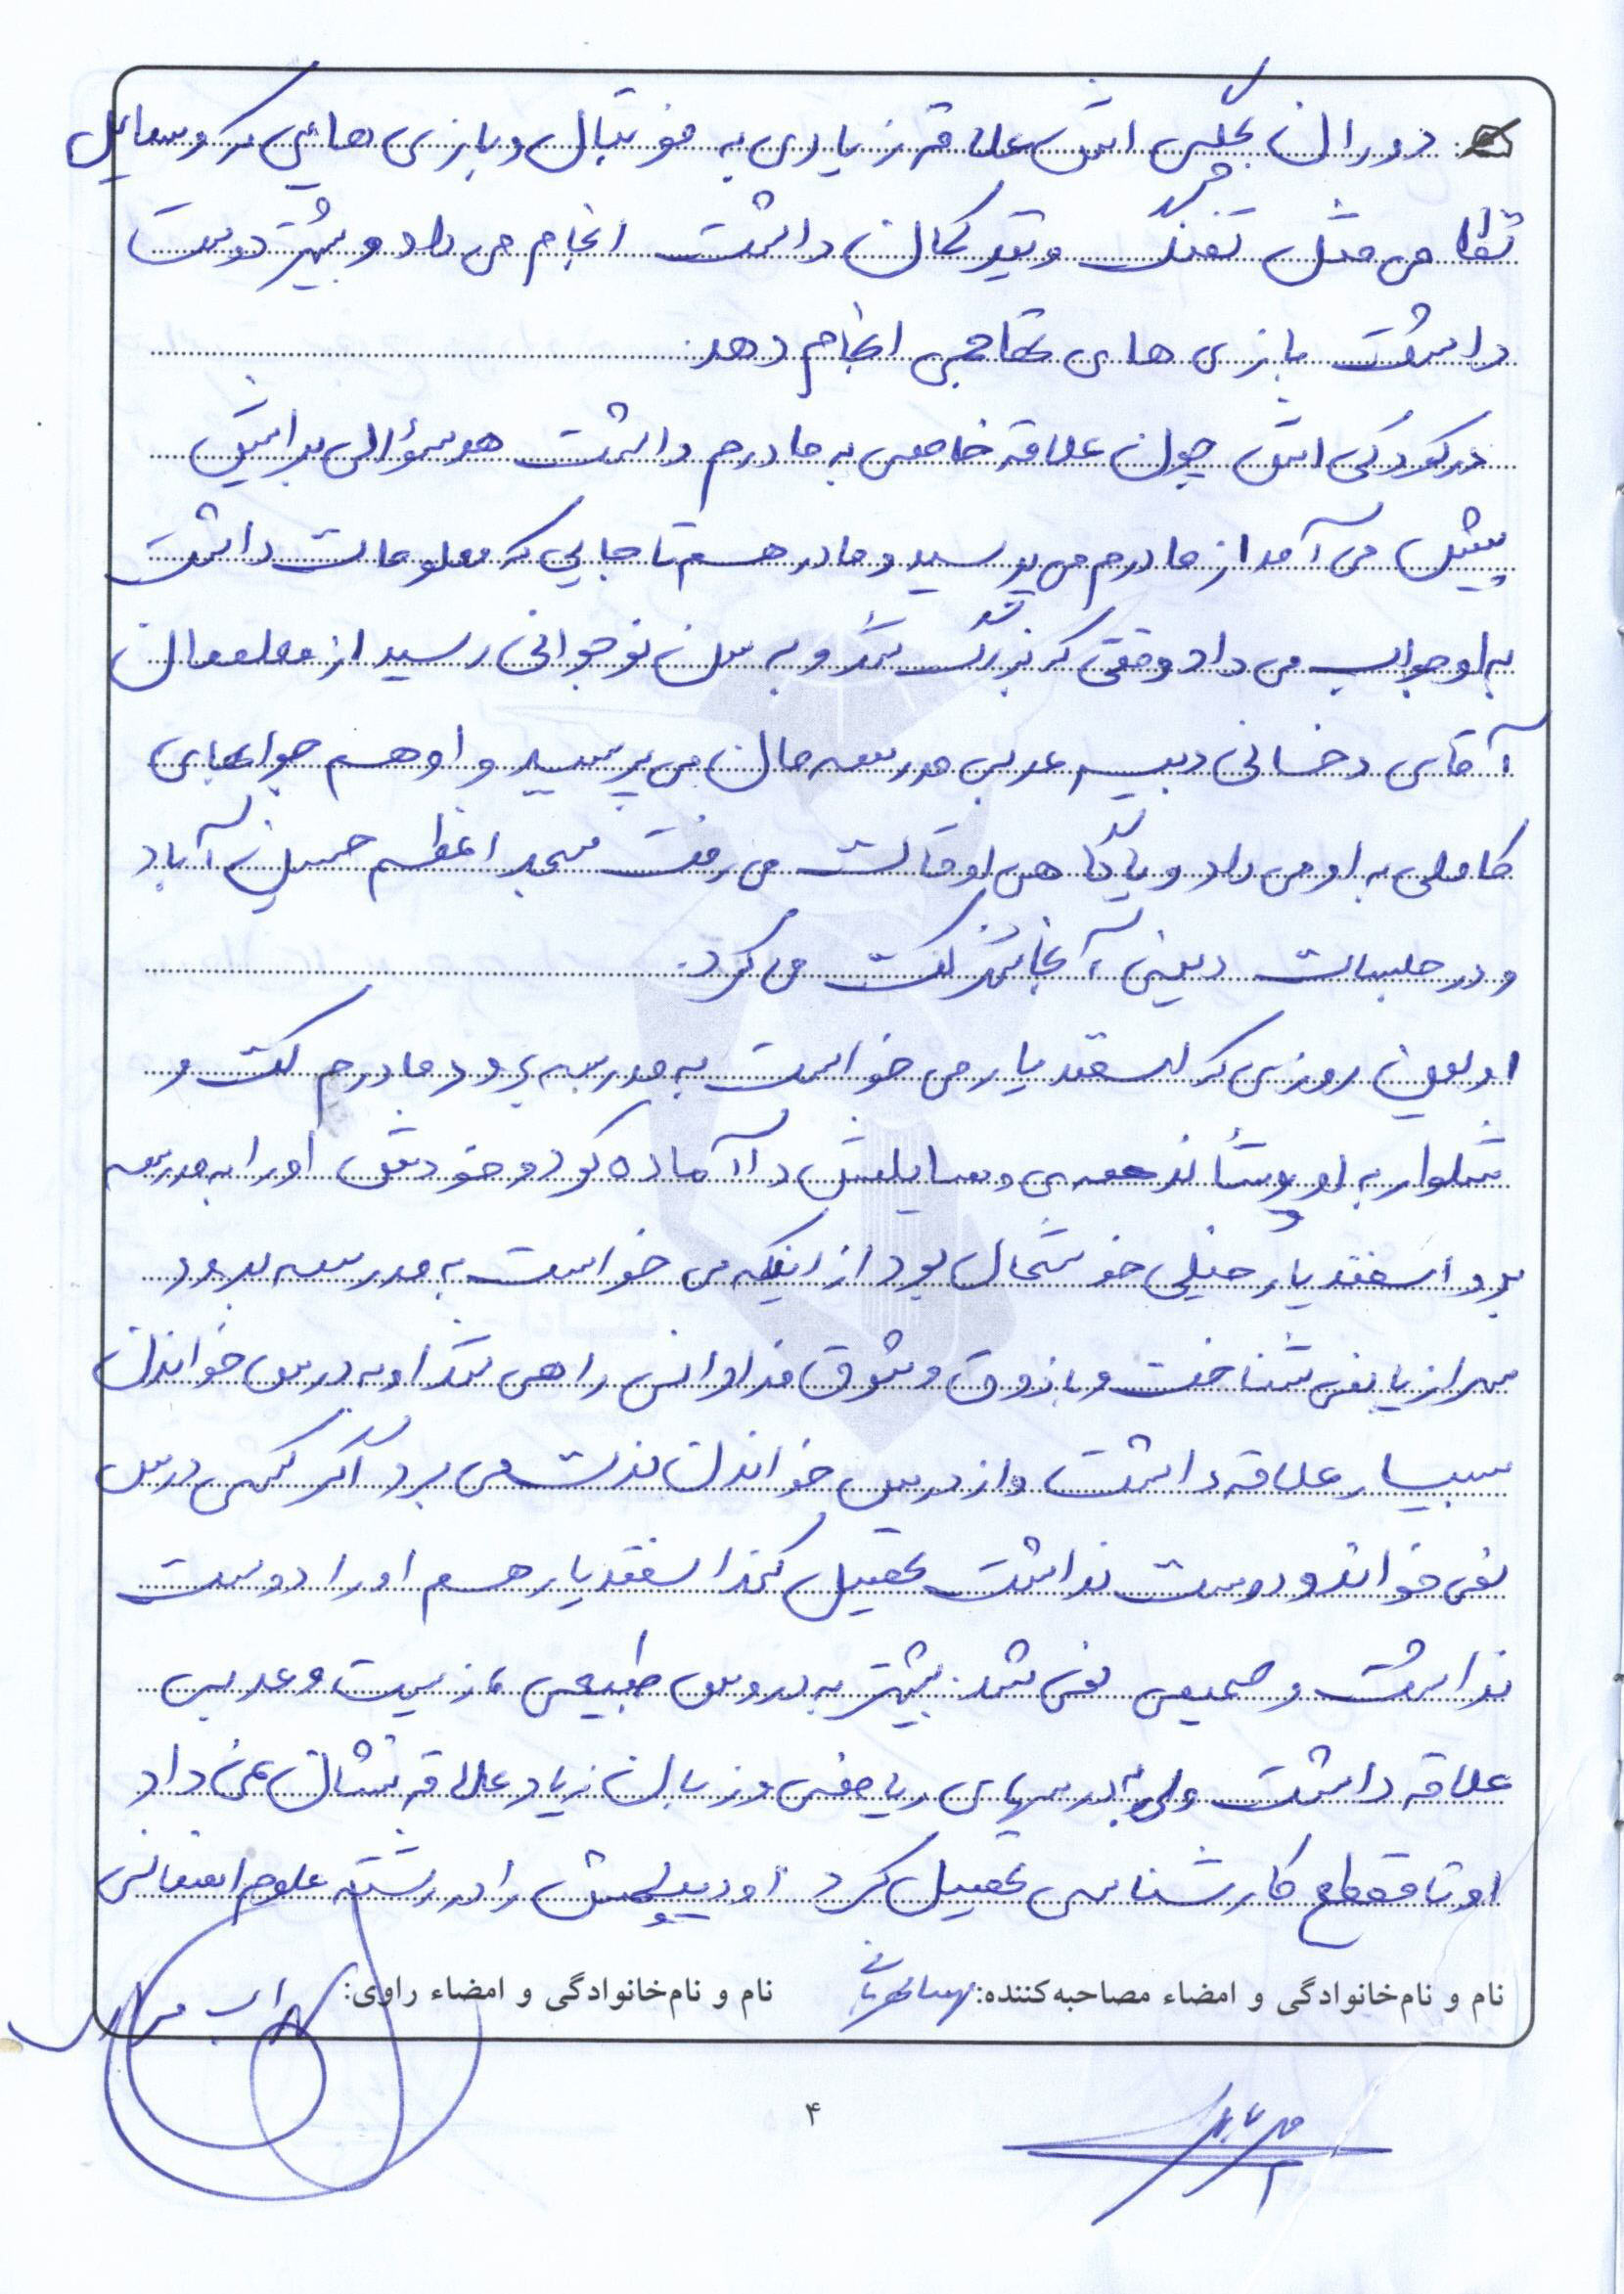 دوران بچگی اش علاقه زیادی به فوتبال و بازی هایی که وسایل
نظامی مثل تفنگ و تیرکمان داشت انجام می داد و بیشتر دوست
داشت بازی های تهاجمی انجام دهد.
در کودکی اش چون علاقه خاصی به مادرم داشت هر سؤالی برایش
پیش می آمد از مادرم می پرسید و مادر هم تا جایی که معلومات داشت
به او جواب می داد وقتی که بزرگ شد و به سن نوجوانی رسید از معلمان
آقای دخانی دبیر عربی مدرسه مان می پرسید و او هم جوابهای
کاملی به او می داد و یا گاهی اوقات می رفت مسجد اعظم حسین آباد
و در جلسات دینی آنجا شرکت می کرد.
اولین روزی که اسفندیار می خواست به مدرسه برود مادرم کت و
شلوار به او پوشاند همه ی وسایلش را آماده کرد و خودش او را به مدرسه
برد اسفندیار خیلی خوشحال بود از اینکه می خواست به مدرسه برود
سر از پا نمی شناخت و با ذوق و شوق فراوانی راهی شد او به درس خواندن
بسیار علاقه داشت و از درس خواندن لذت می برد اگر کسی درس
نمی خواند و دوست نداشت تحصیل کند اسفندیار هم او را دوست
نداشت و صمیمی نمی شد. بیشتر به دروس طبیعی، زیست و عربی
علاقه داشت ولی به درسهای ریاضی و زبان زیاد علاقه نشان نمی داد
او تا مقطع کارشناسی تحصیل کرد او دیپلمش را در رشته علوم انسانی
نام و نام‌خانوادگی و امضاء مصاحبه‌کننده: نام و نام‌خانوادگی و امضاء راوی:
۴